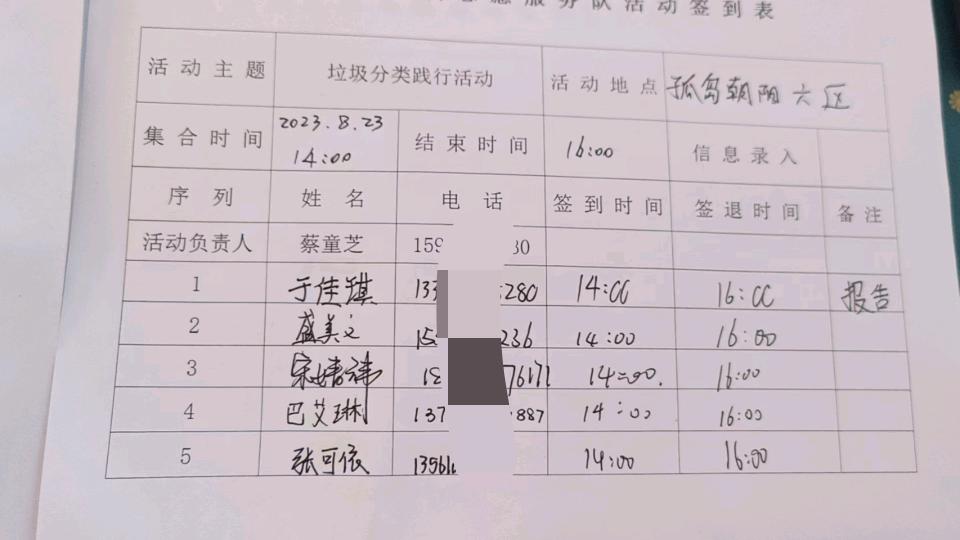 服务队活动签到表
活动主题 垃圾分类践行活动 活动地点 孤岛朝阳六区
集合时间 2023.8.23 14:00 结束时间 16:00 信息录入
序列 姓名 电话 签到时间 签退时间 备注
活动负责人 蔡童芝 159 30
1 于佳琪 133 280 14:00 16:00 报告
2 盛美文 15 236 14:00 16:00
3 宋婧祎 18 14:00. 16:00
4 巴艾琳 137 887 14:00 16:00
5 张可依 1356 14:00 16:00